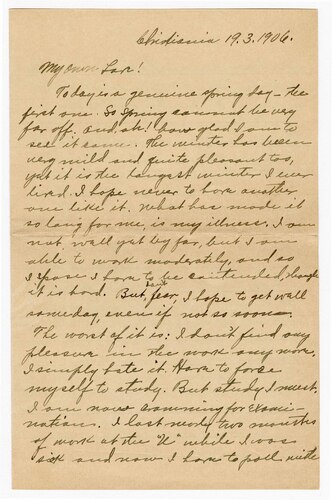 Christiania 19.3.1906.
My own Lar!
Today is a genuine spring day – the
first one. So Spring cannot be very
far off. And, ah! how glad I am to
see it come. The winter has been
very mild and quite pleasant too,
yet it is the longest winter I ever
lived. I hope never to have another
one like it. What has made it
so long for me, is my illness. I am
not well yet by far, but I am
able to work moderately, and so
I spose I have to be contended, though
it is hard. But, don't fear, I hope to get well
someday, even if not so soon.
The worst of it is: I don't find any
pleasure in the work any more,
I simply hate it. Have to force
myself to study. But study I must.
I am now cramming for Exami-
nations. I lost nearly two months
of work at the "U" while I was
sick and now I have to poll with